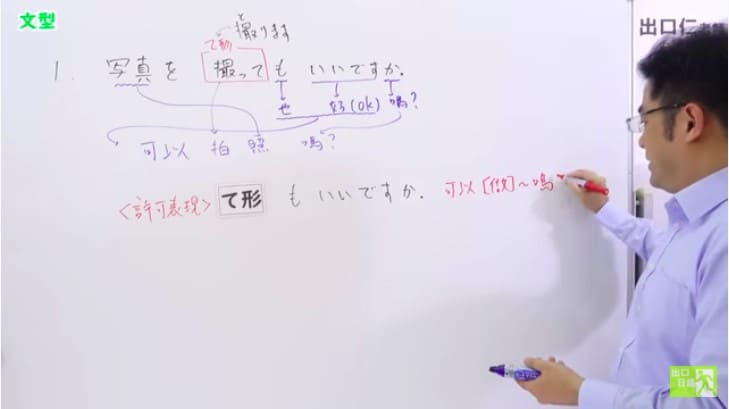 文型
出口仁
と
撮ります
て形
1. 写真を 撮って も いいですか.
也 好(ok) 嗎?
可以 拍 照 嗎?
<許可表現> て形 も いいですか. 可以[做]~嗎
出口
日語